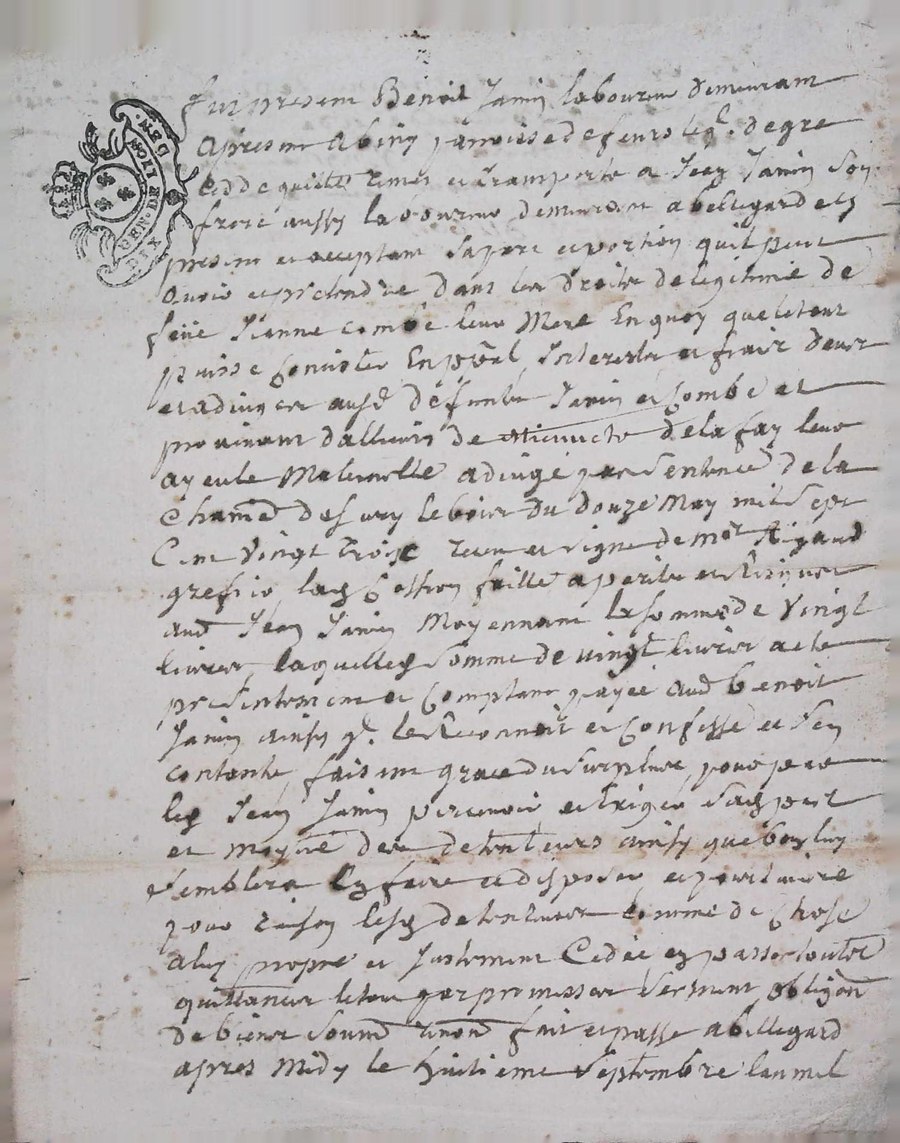 GEN. DE LYON
DIX DEN.
Fut present Benoit Janin laboureur demeurant
a present a biny parroisse de feurs leql. de gre
cedde quitte remet et transporte a Jean Janin son
frere aussy laboureur demeurant a bellegard et
present et acceptant sa part et portion quil peut
avoir et pretendre dans les droits de legitime de
feüe Jeanne combe leur Mere En quoy que le tout
puisse consister En prāl, Interests et frais deues
et adjugee ausd defunts Janin et Combe et
provenant dalleurs de de la fay leur
ayeule Maternelle adjugé par sentence de la
Chamb de sury le bois du douze May mil sept
Cent vingt trois receu et signé de mor Rigaud
grefier lad Cession faitte a perils et risques
aud Jean Janin Moyennant la somme de vingt
livres, laquelle somme de vingt livres a este
presentement et comptant payée aud benoit
Janin ainsy ql. le Reconnoit et confesse et sen
contente, faisant grace du surplus, pour par
led Jean Janin percevoir et Exiger sad part
et moytié des detenteurs ainsy que bon luy
semblera En faire et disposer et poursuivre
pour raison lesd detenteurs comme de chose
a luy propre et Justement Cedée en passer toutes
quittances le tout par promisses serment obligaōn
de biens soumō renōn fait et passé a bellegard
apres Midy le huitieme septembre lan mil